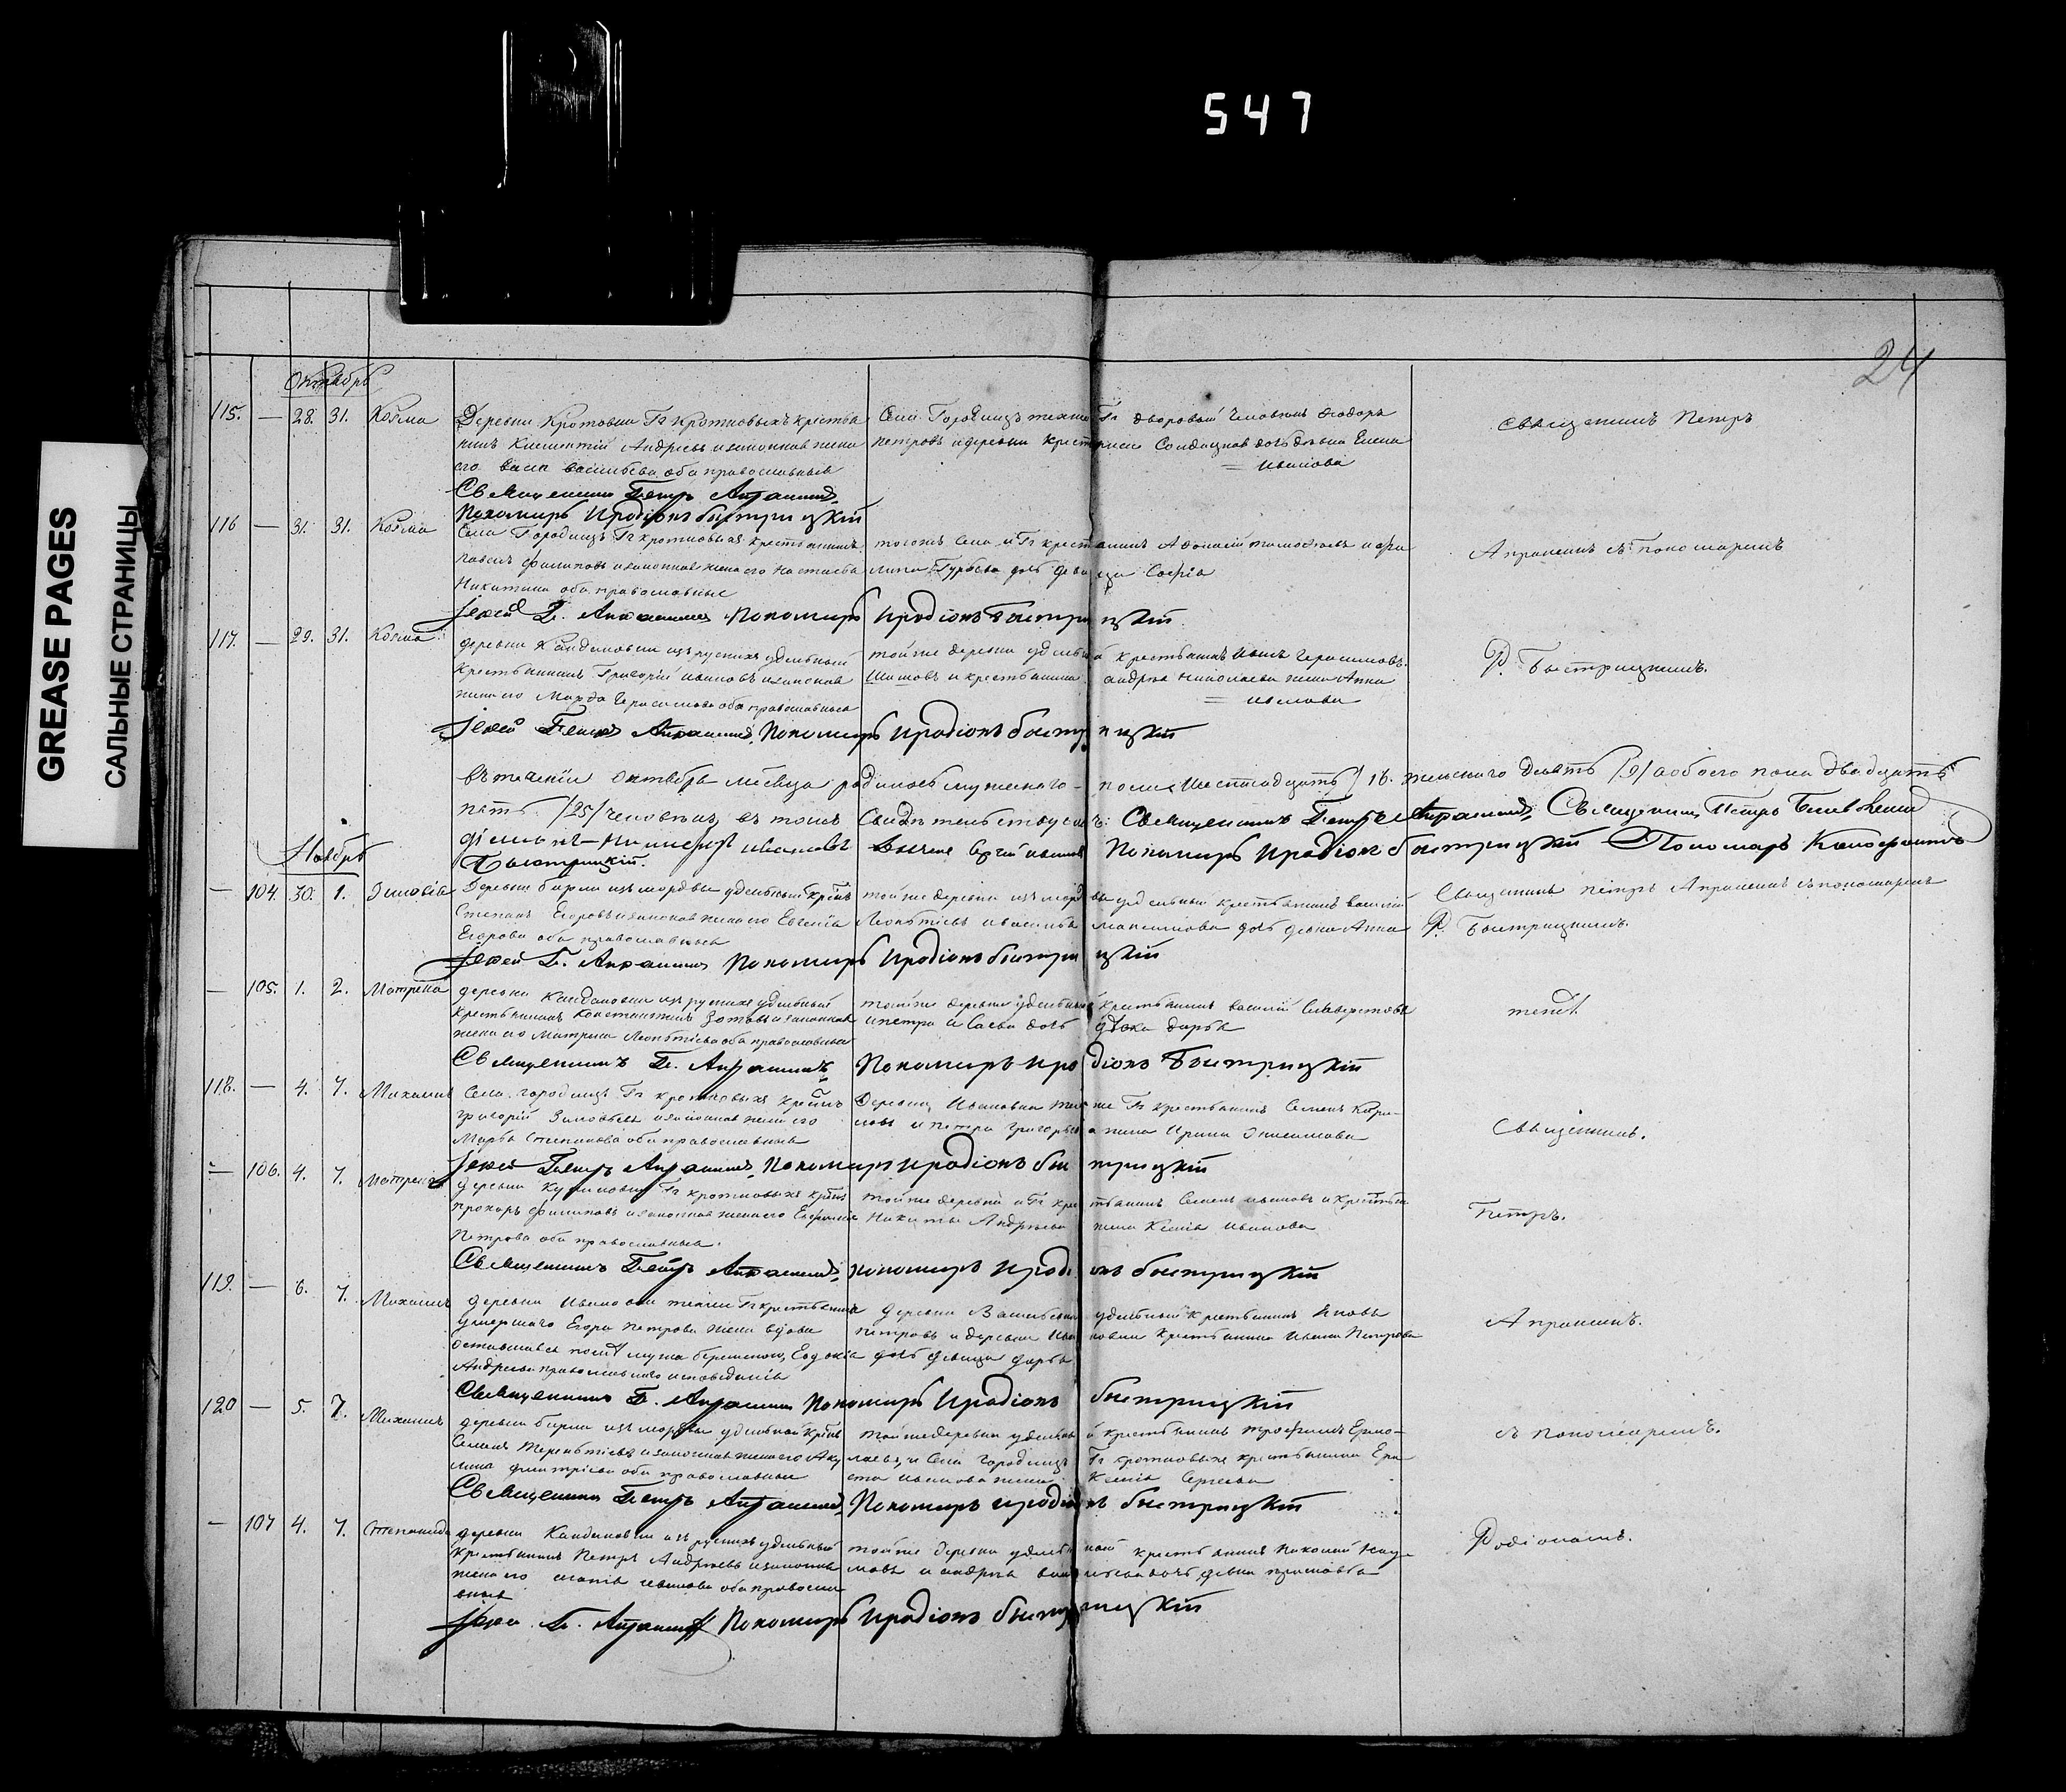 547
GREASE PAGES
САЛЬНЫЕ СТРАНИЦЫ
24
Октябрь
115. — 28. 31. Козма
Деревни Кротовки Гг Кротковыхъ крестья
нинъ Климентій Андреевъ и законная жена
его васильева оба православныя
Села Городищъ техже Гг дворовый человекъ Феодоръ
петровъ и деревни
Елена
= иванова
Священникъ Петръ
Священникъ Петръ Апраксинъ
Пономарь Иродіонъ быстрицкій
116 — 31. 31. Козма
Села Городищъ Гг кротковыхъ крестьянинъ
павелъ филиповъ и законная жена его Настасья
Никитина оба православные
тогожъ Села и Гг крестьянинъ Афонасій тимофеевъ и
Гурьева дочь девица Софія
Апраксинъ съ пономаремъ
Іерей П. Апраксинъ Пономарь Иродіонъ Быстрицкій
117. — 29. 31. Козма
деревни Кандаковки изъ рускихъ удельный
крестьянинъ Григорій ивановъ и законная
жена его Марфа Герасимова оба православныя
той же деревни удельный крестьянинъ Иванъ Герасимовъ
и крестьянина андрея николаева жена Анна
= иванова
Р. Быстрицкимъ.
Іерей Петръ Апраксинъ, Пономарь Иродіонъ быстрицкій
въ теченіи октября месяца родилось мужескаго пола шестнадцать /16. женскаго девять /9/ а обоего пола двадцать
пять /25/ человекъ, въ томъ Свидетельствуемъ: Священникъ Петръ Апраксинъ, Священникъ Петръ
діаконъ ивановъ Пономарь Иродіонъ быстрицкій Пономарь
Быстрицкій.
Ноябрь
— 104. 30. 1. Зиновія
Деревни бирли изъ мордвы удельный крестьянинъ
Степанъ Егоровъ и законная жена его Евгенія
Егорова оба православныя
той же деревни изъ мордвы удельный крестьянинъ василій
Леонтьевъ и максимова дочь девка Анна
Священникъ петръ Апраксинъ съ пономаремъ
Р. Быстрицкимъ.
Іерей П. Апраксинъ Пономарь Иродіонъ быстрицкій
— 105. 1. 2. Матрена
деревни Кандаковки изъ рускихъ удельный
крестьянинъ Константинъ Зотовъ и законная
жена его Матрена Леонтіева оба православныя
той же деревни удельный крестьянинъ василій Селиверстовъ
и петра Исаева дочь девка дарья
теже
Священникъ П. Апраксинъ Пономарь Иродіонъ Быстрицкій
118. — 4. 7. Михаилъ
Села городищъ Гг кротковыхъ крестьянинъ
григорій Зиновьевъ и законная жена его
Марфа Степанова оба православныя
Деревни Ивановки техже Гг крестьянинъ Семенъ
и петра григорьева жена Ирина Онисимова
Священникъ.
Іерей Петръ Апраксинъ, Пономарь Иродіонъ быстрицкій
— 106. 4. 7. Матрена
деревни Гг кротковыхъ
прохоръ филиповъ и законная жена его
Петрова оба православныя.
той же деревни и Гг крестьянинъ Семенъ ивановъ и крестьянина
Никиты Андреева жена Ксенія иванова
Петръ.
Священникъ Петръ Апраксинъ, пономарь Иродіонъ быстрицкій
119. — 6. 7. Михаилъ
деревни Ивановки техже Гг крестьянина
умершаго Егора петрова жена вдова
оставшаяся после мужа беременною, Евдокія
Андреева православнаго исповеданія
деревни удельный крестьянинъ Яковъ
петровъ и деревни Ивановки крестьянина Ивана Петрова
дочь девица дарья
Апраксинъ.
Священникъ П. Апраксинъ Пономарь Иродіонъ быстрицкій
120 — 5. 7. Михаилъ
деревни бирли изъ мордвы удельный
Семенъ Терентіевъ и законная жена его Аку
лина дмитріева оба православныя
той же деревни удельный крестьянинъ трофимъ Ермо-
лаевъ, и Села городищъ Гг кротковыхъ крестьянина
иванова жена Ксенія Сергеева
съ пономаремъ.
Священникъ Петръ Апраксинъ, Пономарь иродіонъ быстрицкій
— 107 4. 7. Степанида
деревни Кандаковки изъ рускихъ удельный
крестьянинъ Петръ Андреевъ и законная
жена его иванова оба правосла
вныя
той же деревни удельный крестьянинъ Николай Нау-
мовъ и андрея васильева дочь девка прасковья
Родіономъ.
Іерей П. Апраксинъ Пономарь Иродіонъ быстрицкій